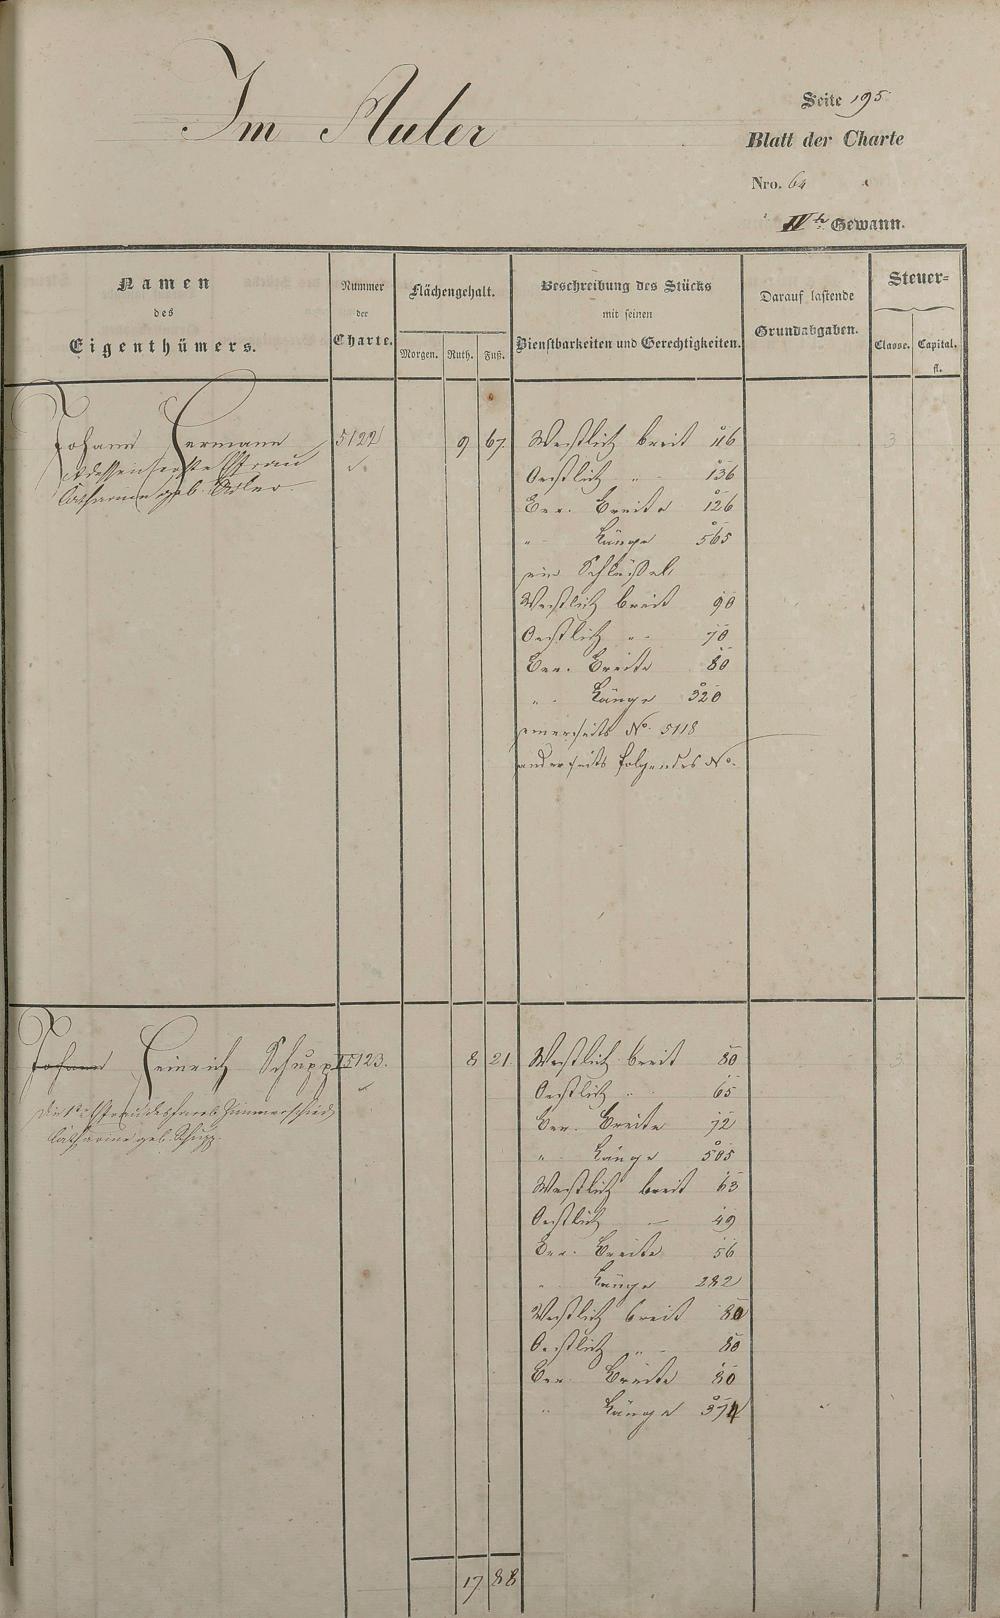 Im Auler
Seite 195
Blatt der Charte
Nro. 64
IVte Gewann.
Namen
des
Eigenthümers.
Nummer
der
Charte.
Flächengehalt.
Morgen. Ruth. Fuß.
Beschreibung des Stücks
mit seinen
Dienstbarkeiten und Gerechtigkeiten.
Darauf lastende
Grundabgaben.
Steuer=
Classe. Capital.
fl.
Johann Hermann 5122 9 67 Westlich breit 116 3
dessen erste Ehefrau
Catharine geb. Adler
Oestlich " 136
Ver. Breite 126
" Länge 565
ein Schlüssel
Westlich breit 90
Oestlich " 70
Ver. Breite 80
" Länge 320
einerseits No. 5118
anderseits folgendes No.
Johann Heinrich Schupp 5123. 8 21 Westlich breit 80 3
die Ehefrau des Zimmerschied
Catharine geb. Schupp.
Oestlich " 65
Ver. Breite 72
" Länge 505
Westlich breit 63
Oestlich — 49
Ver. Breite 56
" Länge 282
Westlich breit 80
Oestlich " 80
Ver. Breite 80
" Länge 374
17 88